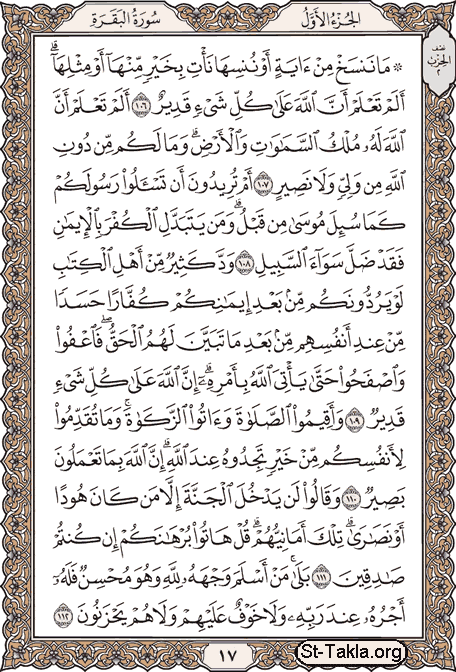 الجُزْءُ الأَوَّلُ
سُورَةُ البَقَرَةِ
نصف
الحِزْب
٢
۞ مَا نَنسَخْ مِنْ ءَايَةٍ أَوْ نُنسِهَا نَأْتِ بِخَيْرٍ مِّنْهَآ أَوْ مِثْلِهَآ ۗ
أَلَمْ تَعْلَمْ أَنَّ ٱللَّهَ عَلَىٰ كُلِّ شَىْءٍ قَدِيرٌ ١٠٦ أَلَمْ تَعْلَمْ أَنَّ
ٱللَّهَ لَهُۥ مُلْكُ ٱلسَّمَٰوَٰتِ وَٱلْأَرْضِ ۗ وَمَا لَكُم مِّن دُونِ
ٱللَّهِ مِن وَلِىٍّ وَلَا نَصِيرٍ ١٠٧ أَمْ تُرِيدُونَ أَن تَسْـَٔلُوا۟ رَسُولَكُمْ
كَمَا سُئِلَ مُوسَىٰ مِن قَبْلُ ۗ وَمَن يَتَبَدَّلِ ٱلْكُفْرَ بِٱلْإِيمَٰنِ
فَقَدْ ضَلَّ سَوَآءَ ٱلسَّبِيلِ ١٠٨ وَدَّ كَثِيرٌ مِّنْ أَهْلِ ٱلْكِتَٰبِ
لَوْ يَرُدُّونَكُم مِّنۢ بَعْدِ إِيمَٰنِكُمْ كُفَّارًا حَسَدًا
مِّنْ عِندِ أَنفُسِهِم مِّنۢ بَعْدِ مَا تَبَيَّنَ لَهُمُ ٱلْحَقُّ ۖ فَٱعْفُوا۟
وَٱصْفَحُوا۟ حَتَّىٰ يَأْتِىَ ٱللَّهُ بِأَمْرِهِۦٓ ۗ إِنَّ ٱللَّهَ عَلَىٰ كُلِّ شَىْءٍ
قَدِيرٌ ١٠٩ وَأَقِيمُوا۟ ٱلصَّلَوٰةَ وَءَاتُوا۟ ٱلزَّكَوٰةَ ۚ وَمَا تُقَدِّمُوا۟
لِأَنفُسِكُم مِّنْ خَيْرٍ تَجِدُوهُ عِندَ ٱللَّهِ ۗ إِنَّ ٱللَّهَ بِمَا تَعْمَلُونَ
بَصِيرٌ ١١٠ وَقَالُوا۟ لَن يَدْخُلَ ٱلْجَنَّةَ إِلَّا مَن كَانَ هُودًا
أَوْ نَصَٰرَىٰ ۗ تِلْكَ أَمَانِيُّهُمْ ۗ قُلْ هَاتُوا۟ بُرْهَٰنَكُمْ إِن كُنتُمْ
صَٰدِقِينَ ١١١ بَلَىٰ مَنْ أَسْلَمَ وَجْهَهُۥ لِلَّهِ وَهُوَ مُحْسِنٌ فَلَهُۥٓ
أَجْرُهُۥ عِندَ رَبِّهِۦ وَلَا خَوْفٌ عَلَيْهِمْ وَلَا هُمْ يَحْزَنُونَ ١١٢
١٧
St-Takla.org